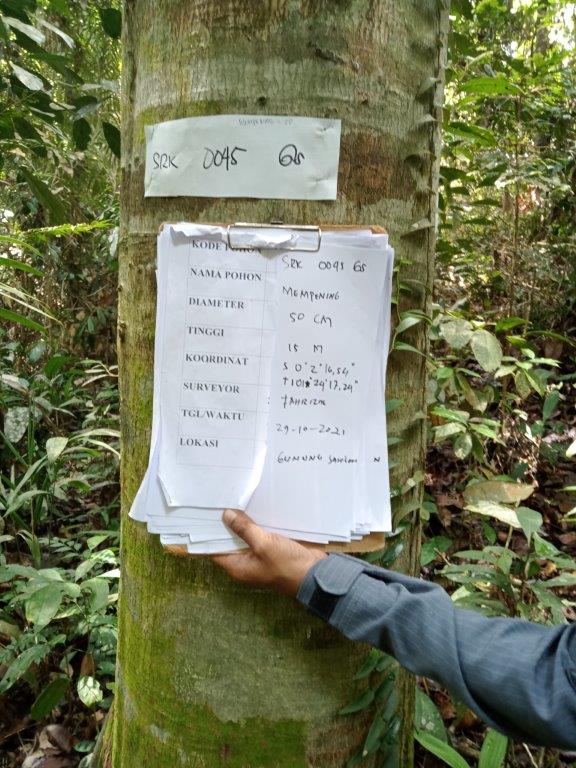 MEMPENING - 50
SRK 0045 GS
KODE POHON SRK 0045 GS
NAMA POHON MEMPENING
DIAMETER 50 CM
TINGGI 15 M
KOORDINAT S 0° 2' 16,54"
T 101° 24' 17,24"
SURVEYOR FAHRIZAL
TGL/WAKTU : 29-10-2021
LOKASI GUNUNG